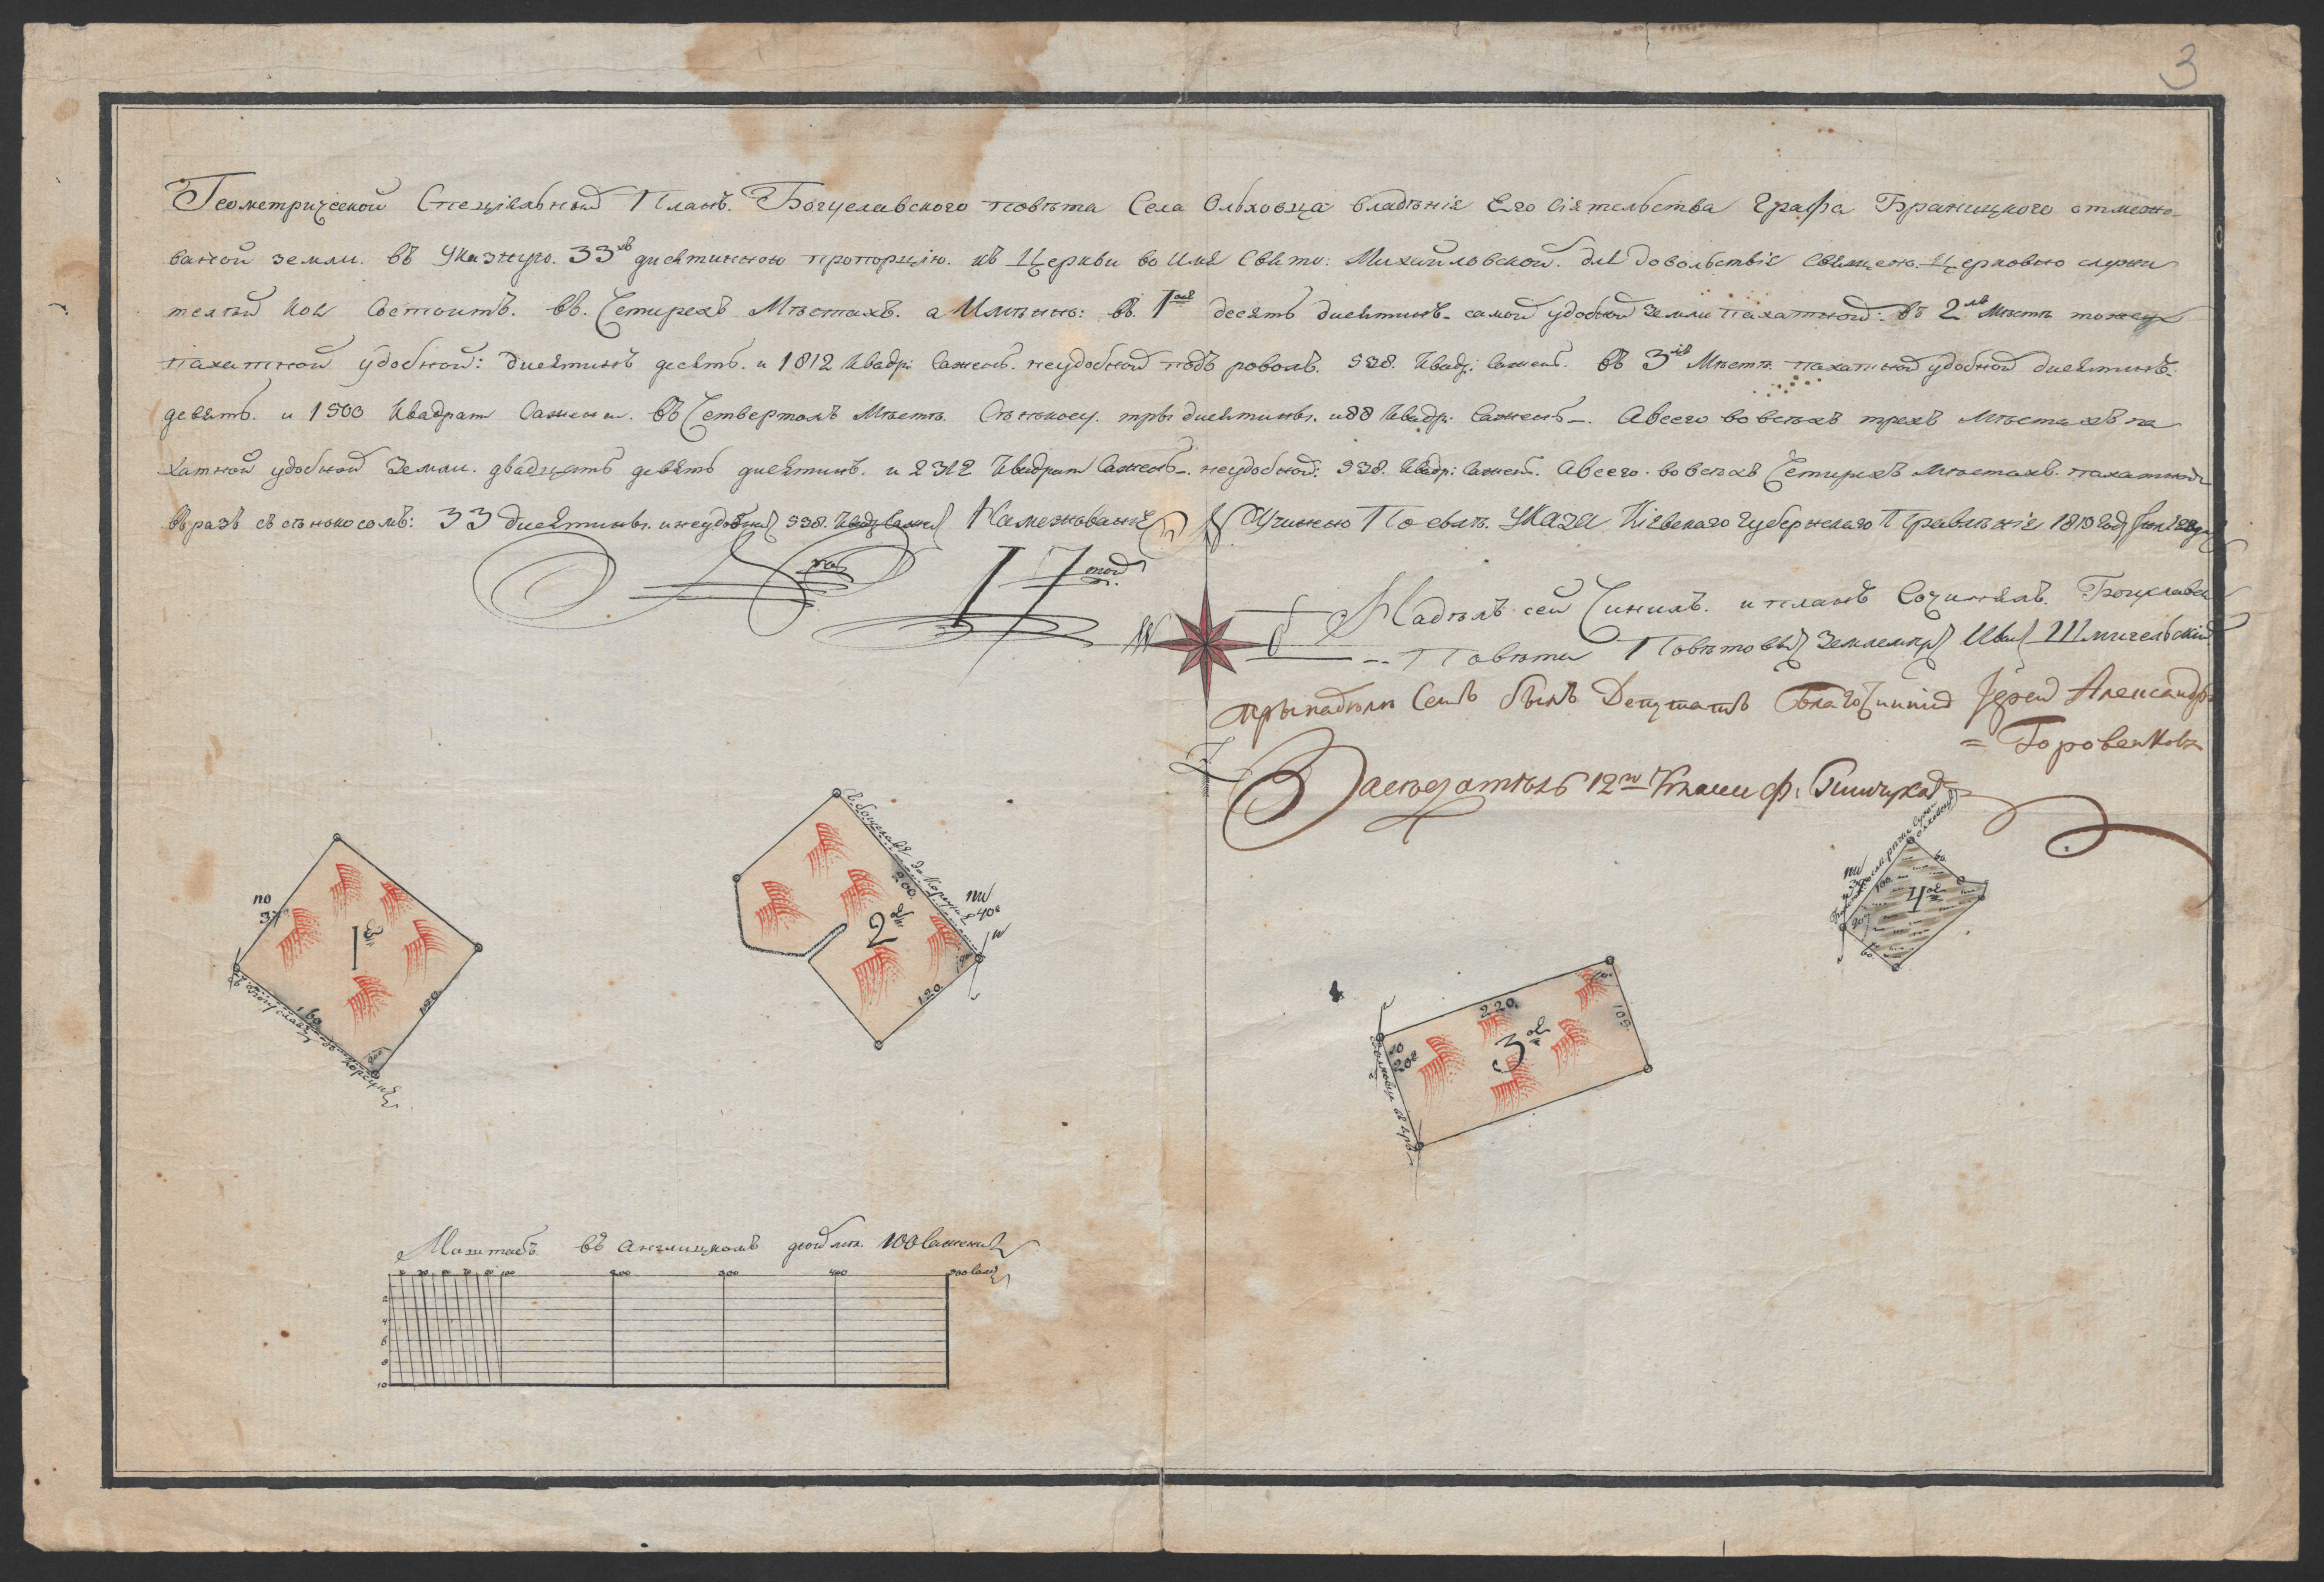 3
Геометрической Спеціальный Планъ. Богуславского повѣта Села Ольховца владѣнія Его Сіятельства Графа Браницкого отмежо-
ваной земли. въ Указную. 33хъ дисятинною пропорцію. къ Церкви во имя Свято: Михайловской. для довольствія Священо. Церковно служи
телей коя Состоитъ. въ. Четирехъ Мѣстахъ. а Имѣнно: въ. 1ом десять дисятинъ. самой удобной Земли пахатной: въ 2мъ Мѣстѣ тоже
пахатной удобной: дисятинъ десять. и 1812 Квадр: Сажень. неудобной подъ ровомъ. 538. Квад: Сажень. въ 3мъ Мѣстѣ. пахатной удобной дисятинъ.
девять. и 1500 Квадрат Сажени. въ Четвертомъ Мѣстѣ. Сѣнокосу. три дисятины. и 88 Квадр: Сажень. Авсего во всѣхъ трехъ Мѣстахъ па
хатной удобной Земли. двадцать девять дисятинъ. и 2312 Квадрат Сажень неудобной: 538. Квадр: Сажень. Авсего. во всѣхъ Четирехъ Мѣстахъ. пахатной
вразъ съ сѣнокосомъ: 33 дисятины. инеудобной 538. Намежованіе Учинено Посилѣ. Указа Кіевскаго Губернскаго Правленія 1819 Году
№ 17той
W O
Надѣлъ сей Чинилъ. и планъ Сочинялъ. Богуславск
Повѣта Повѣтовый Землемѣръ Иван Шмигельскій
При надѣли Семъ былъ Депутатъ Благочинній Іерей Александръ
Боровиковъ
Засѣдатель 12го Класи Ф:
1е
no
37
160
120
90
2е
200
120
nw
40
3е
220
100
90
20
4е
nw
100
60
60
90
Маштабъ въ англицкомъ дюймѣ. 100 Сажень
100 200 300 400 500 Саж
2
4
6
8
10